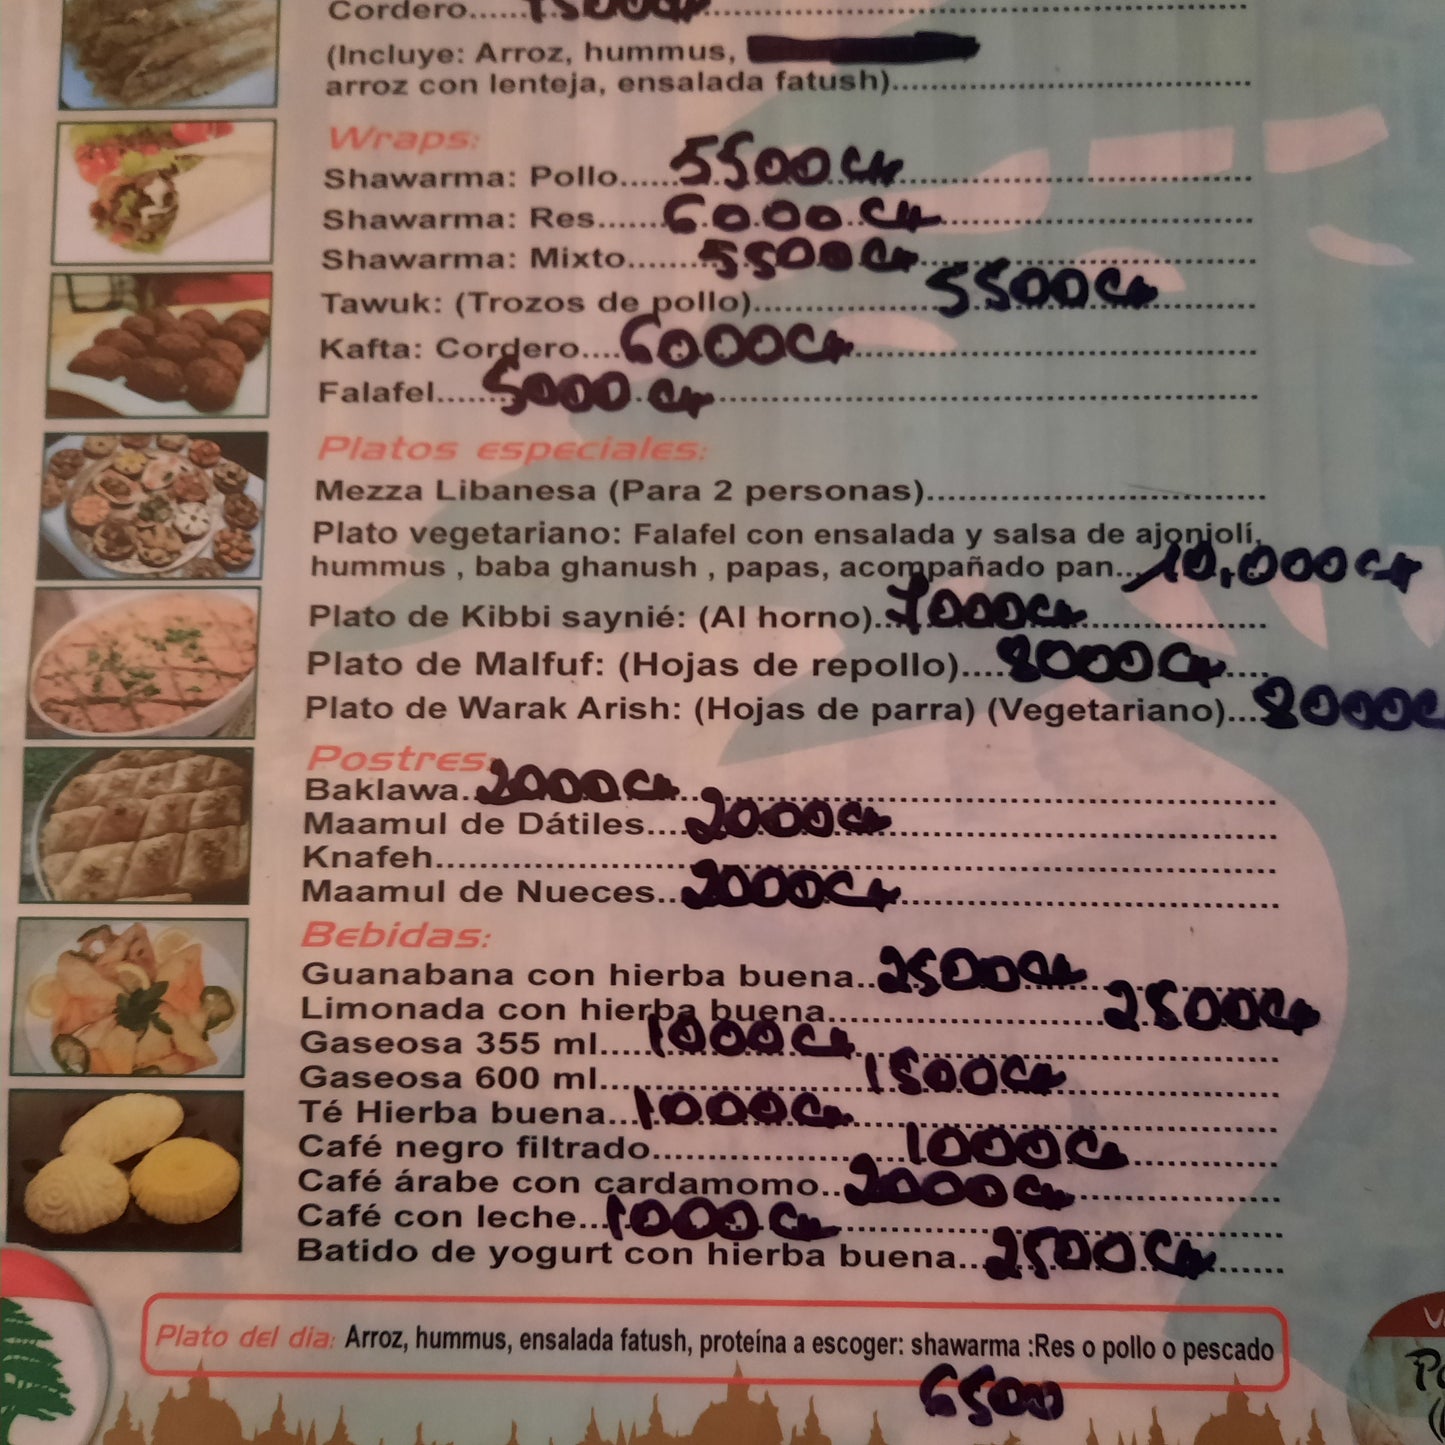 Cordero......7500C
(Incluye: Arroz, hummus,
arroz con lenteja, ensalada fatush)
Wraps:
Shawarma: Pollo......5500 C/u
Shawarma: Res.......6000 C/u
Shawarma: Mixto........5500 C/u
Tawuk: (Trozos de pollo)..................5500 C/u
Kafta: Cordero....6000 C/u
Falafel......5000 C/u
Platos especiales:
Mezza Libanesa (Para 2 personas)
Plato vegetariano: Falafel con ensalada y salsa de ajonjolí,
hummus , baba ghanush , papas, acompañado pan...10,000 C/u
Plato de Kibbi saynié: (Al horno)..7000 C/u
Plato de Malfuf: (Hojas de repollo)....8000 C/u
Plato de Warak Arish: (Hojas de parra) (Vegetariano)...8000 C
Postres:
Baklawa..2000 C/u
Maamul de Dátiles....2000 C/u
Knafeh
Maamul de Nueces..2000 C/u
Bebidas:
Guanabana con hierba buena..2500 C/u
Limonada con hierba buena.........................2500 C/u
Gaseosa 355 ml.....1000 C/u
Gaseosa 600 ml.........................1500 C/u
Té Hierba buena...1000 C/u
Café negro filtrado.......................1000 C/u
Café árabe con cardamomo..2000 C/u
Café con leche...1000 C/u
Batido de yogurt con hierba buena...2500 C/u
Plato del dia: Arroz, hummus, ensalada fatush, proteína a escoger: shawarma :Res o pollo o pescado
6500